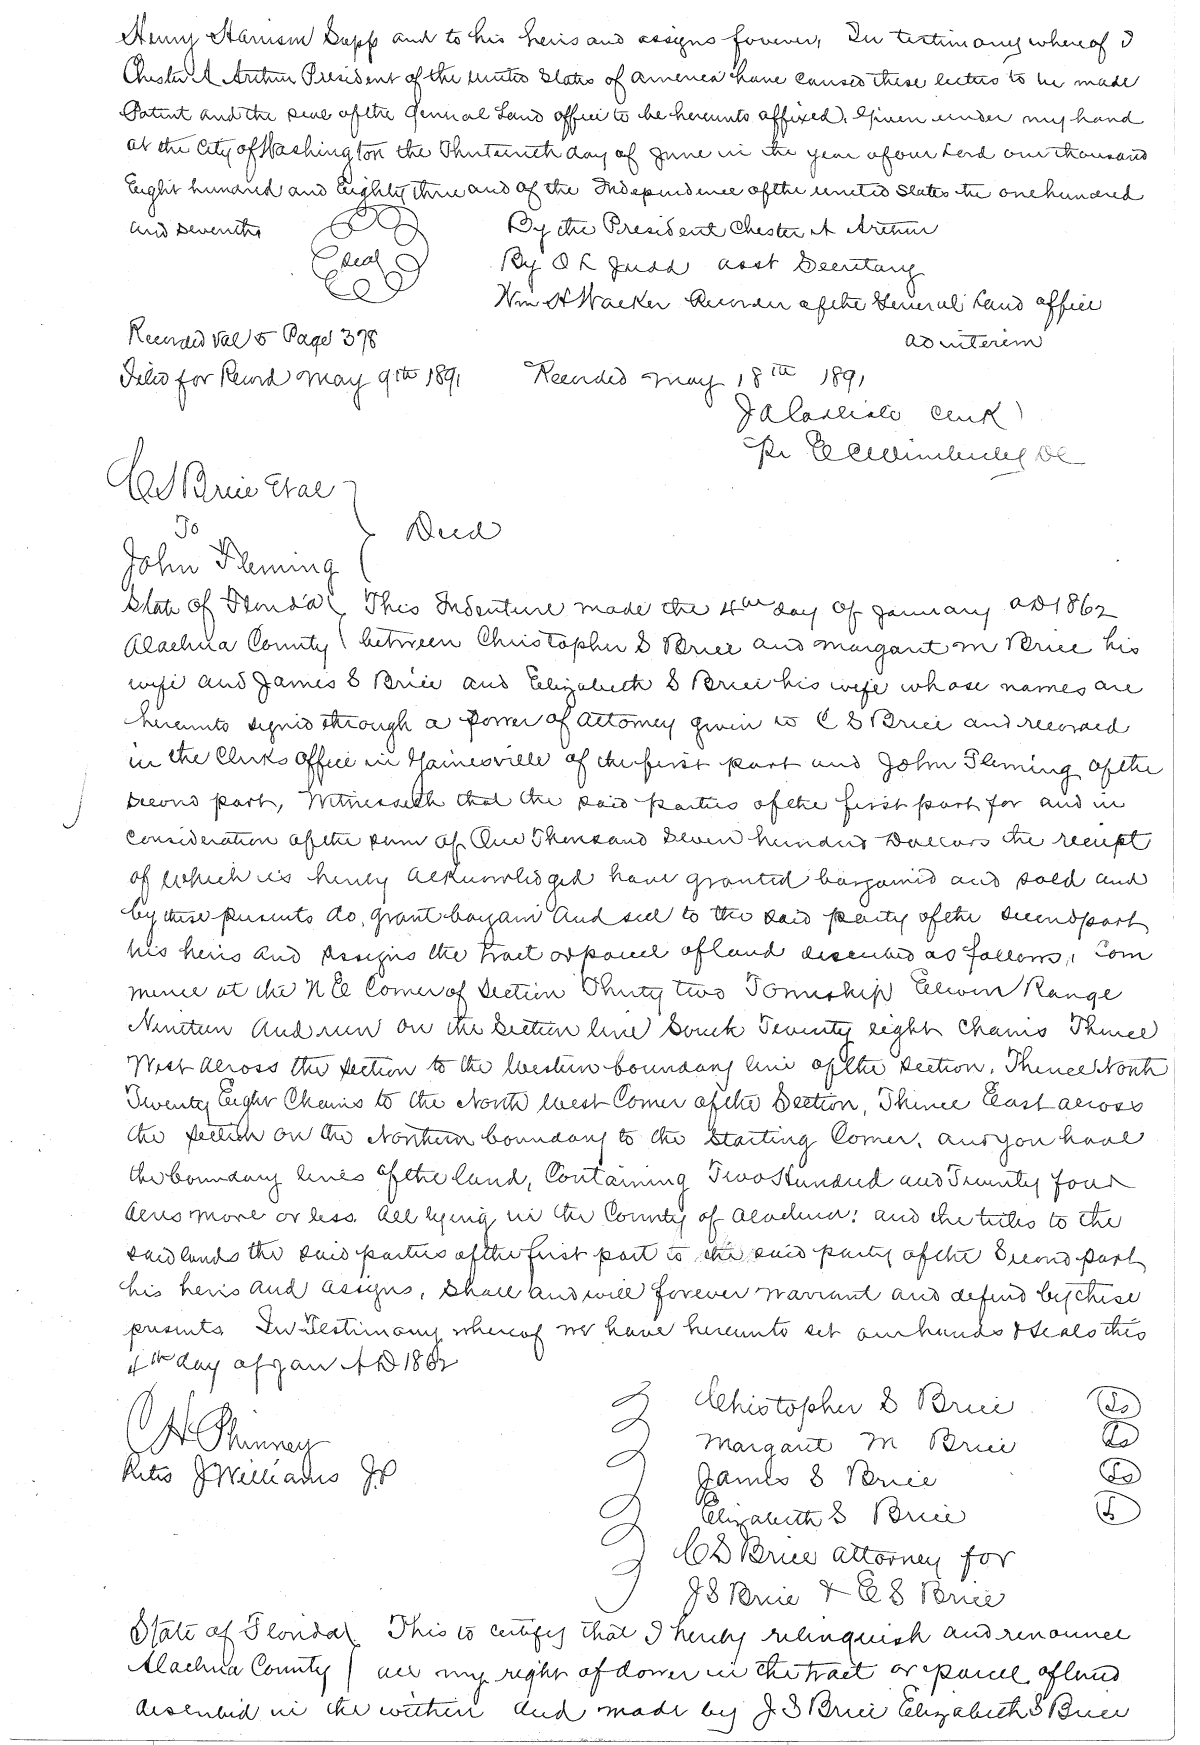 Henry Harrison Sapp and to his heirs and assigns forever, In testimony whereof I
Chester A Arthur President of the united States of america have caused these letters to be made
Patent and the seal of the General Land office to be hereunto affixed. Given under my hand
at the City of Washington the Thirteenth day of June in the year of our Lord one thousand
Eight hundred and Eighty three and of the Independence of the united States the one hundred
and seventh
Seal
By the President Chester A Arthur
By O L Judd asst Secretary
Wm H Walker Recorder of the General Land office
ad interim
Recorded Vol 5 Page 378
Filed for Record may 9th 1891
Recorded may 18th 1891
J A Carlisle Clerk
Pr E C Wimberley DC
C S Brice Etal
To
John Fleming
Deed
State of Florida
Alachua County
This Indenture made the 4th day of January AD 1862
between Christopher S Brice and Margaret M Brice his
wife and James S Brice and Elizabeth S Brice his wife whose names are
hereunto signed through a power of attorney given to C S Brice and recorded
in the Clerks office in Gainesville of the first part and John Fleming of the
second part, Witnesseth that the said parties of the first part for and in
consideration of the sum of One Thousand Seven hundred Dollars the receipt
of which is hereby acknowledged have granted bargained and sold and
by these presents do, grant bargain and sell to the said party of the second part
his heirs and assigns the tract or parcel of land described as follows, Com
mence at the N E Corner of Section Thirty two Township Eleven Range
Nineteen And run on the Section line South Twenty eight Chains Thence
West across the section to the Western boundary line of the section, Thence North
Twenty Eight Chains to the North West Corner of the Section, Thence East across
the section on the Northern boundary to the Starting Corner, and you have
the boundary lines of the land, Containing Two Hundred and Twenty four
Acres more or less. All lying in the County of Alachua: and the titles to the
said lands the said parties of the first part to the said party of the Second part
his heirs and assigns, Shall and will forever warrant and defend by these
presents In Testimony whereof we have hereunto set our hands & Seals this
4th day of Jan AD 1862
C H Phinney
J Williams J.P
Christopher S Brice Ls
Margaret M Brice Ls
James S Brice Ls
Elizabeth S Brice Ls
C S Brice attorney for
J S Brice & E S Brice
State of Florida
Alachua County
This to certify that I hereby relinquish and renounce
all my right of dower in the tract or parcel of land
described in the within and made by J S Brice Elizabeth S Brice